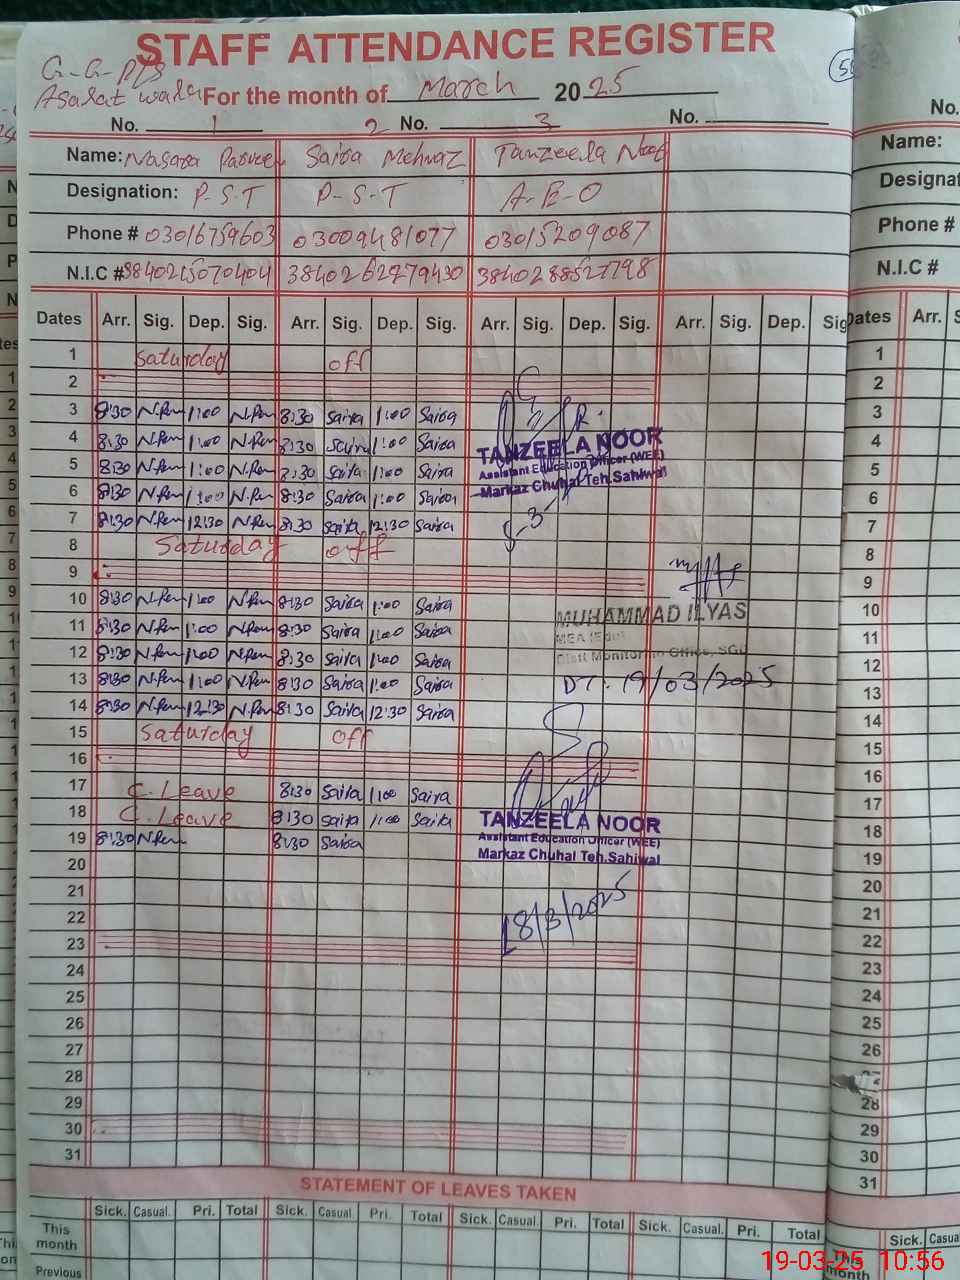 STAFF ATTENDANCE REGISTER
G-G-P/S
Asalat wala For the month of March 2025
No. 1 2 No. 3 No.
Name: Nasara Parveen Saira Mehnaz Tanzeela Noor
Designation: P-S-T P-S-T A-E-O
Phone # 03016759603 03009481077 03015209087
N.I.C # 3840215070404 3840262779430 3840288527798
Dates Arr. Sig. Dep. Sig. Arr. Sig. Dep. Sig. Arr. Sig. Dep. Sig. Arr. Sig. Dep. Sig
1 Saturday off
2
3 8:30 N.Pen 1:00 N.Pen 8:30 Saira 1:00 Saira
4 8:30 N.Pen 1:00 N.Pen 8:30 Saira 1:00 Saira
TANZEELA NOOR
5 8:30 N.Pen 1:00 N.Pen 8:30 Saira 1:00 Saira
Assistant Education Officer (WEE)
6 8:30 N.Pen 1:00 N.Pen 8:30 Saira 1:00 Saira
Markaz Chuhal Teh.Sahiwal
7 8:30 N.Pen 12:30 N.Pen 8:30 Saira 12:30 Saira
5-3-
8 Saturday off
9
10 8:30 N.Pen 1:00 N.Pen 8:30 Saira 1:00 Saira
MUHAMMAD ILYAS
11 8:30 N.Pen 1:00 N.Pen 8:30 Saira 1:00 Saira
MEA (Edu)
12 8:30 N.Pen 1:00 N.Pen 8:30 Saira 1:00 Saira
Distt Monitoring Office, SGD
13 8:30 N.Pen 1:00 N.Pen 8:30 Saira 1:00 Saira
DT: 19/03/2025
14 8:30 N.Pen 12:30 N.Pen 8:30 Saira 12:30 Saira
15 Saturday off
16
17 C.Leave 8:30 Saira 1:00 Saira
18 C.Leave 8:30 Saira 1:00 Saira
TANZEELA NOOR
19 8:30 N.Pen 8:30 Saira
Assistant Education Officer (WEE)
Markaz Chuhal Teh.Sahiwal
20
21
22
18/3/2025
23
24
25
26
27
28
29
30
31
STATEMENT OF LEAVES TAKEN
Sick. Casual. Pri. Total Sick. Casual. Pri. Total Sick. Casual. Pri. Total Sick. Casual. Pri. Total
This month
Previous
No.
Name:
Designat
Phone #
N.I.C #
Dates Arr. S
1
2
3
4
5
6
7
8
9
10
11
12
13
14
15
16
17
18
19
20
21
22
23
24
25
26
28
29
30
31
Sick. Casua
This month
19-03-25 10:56